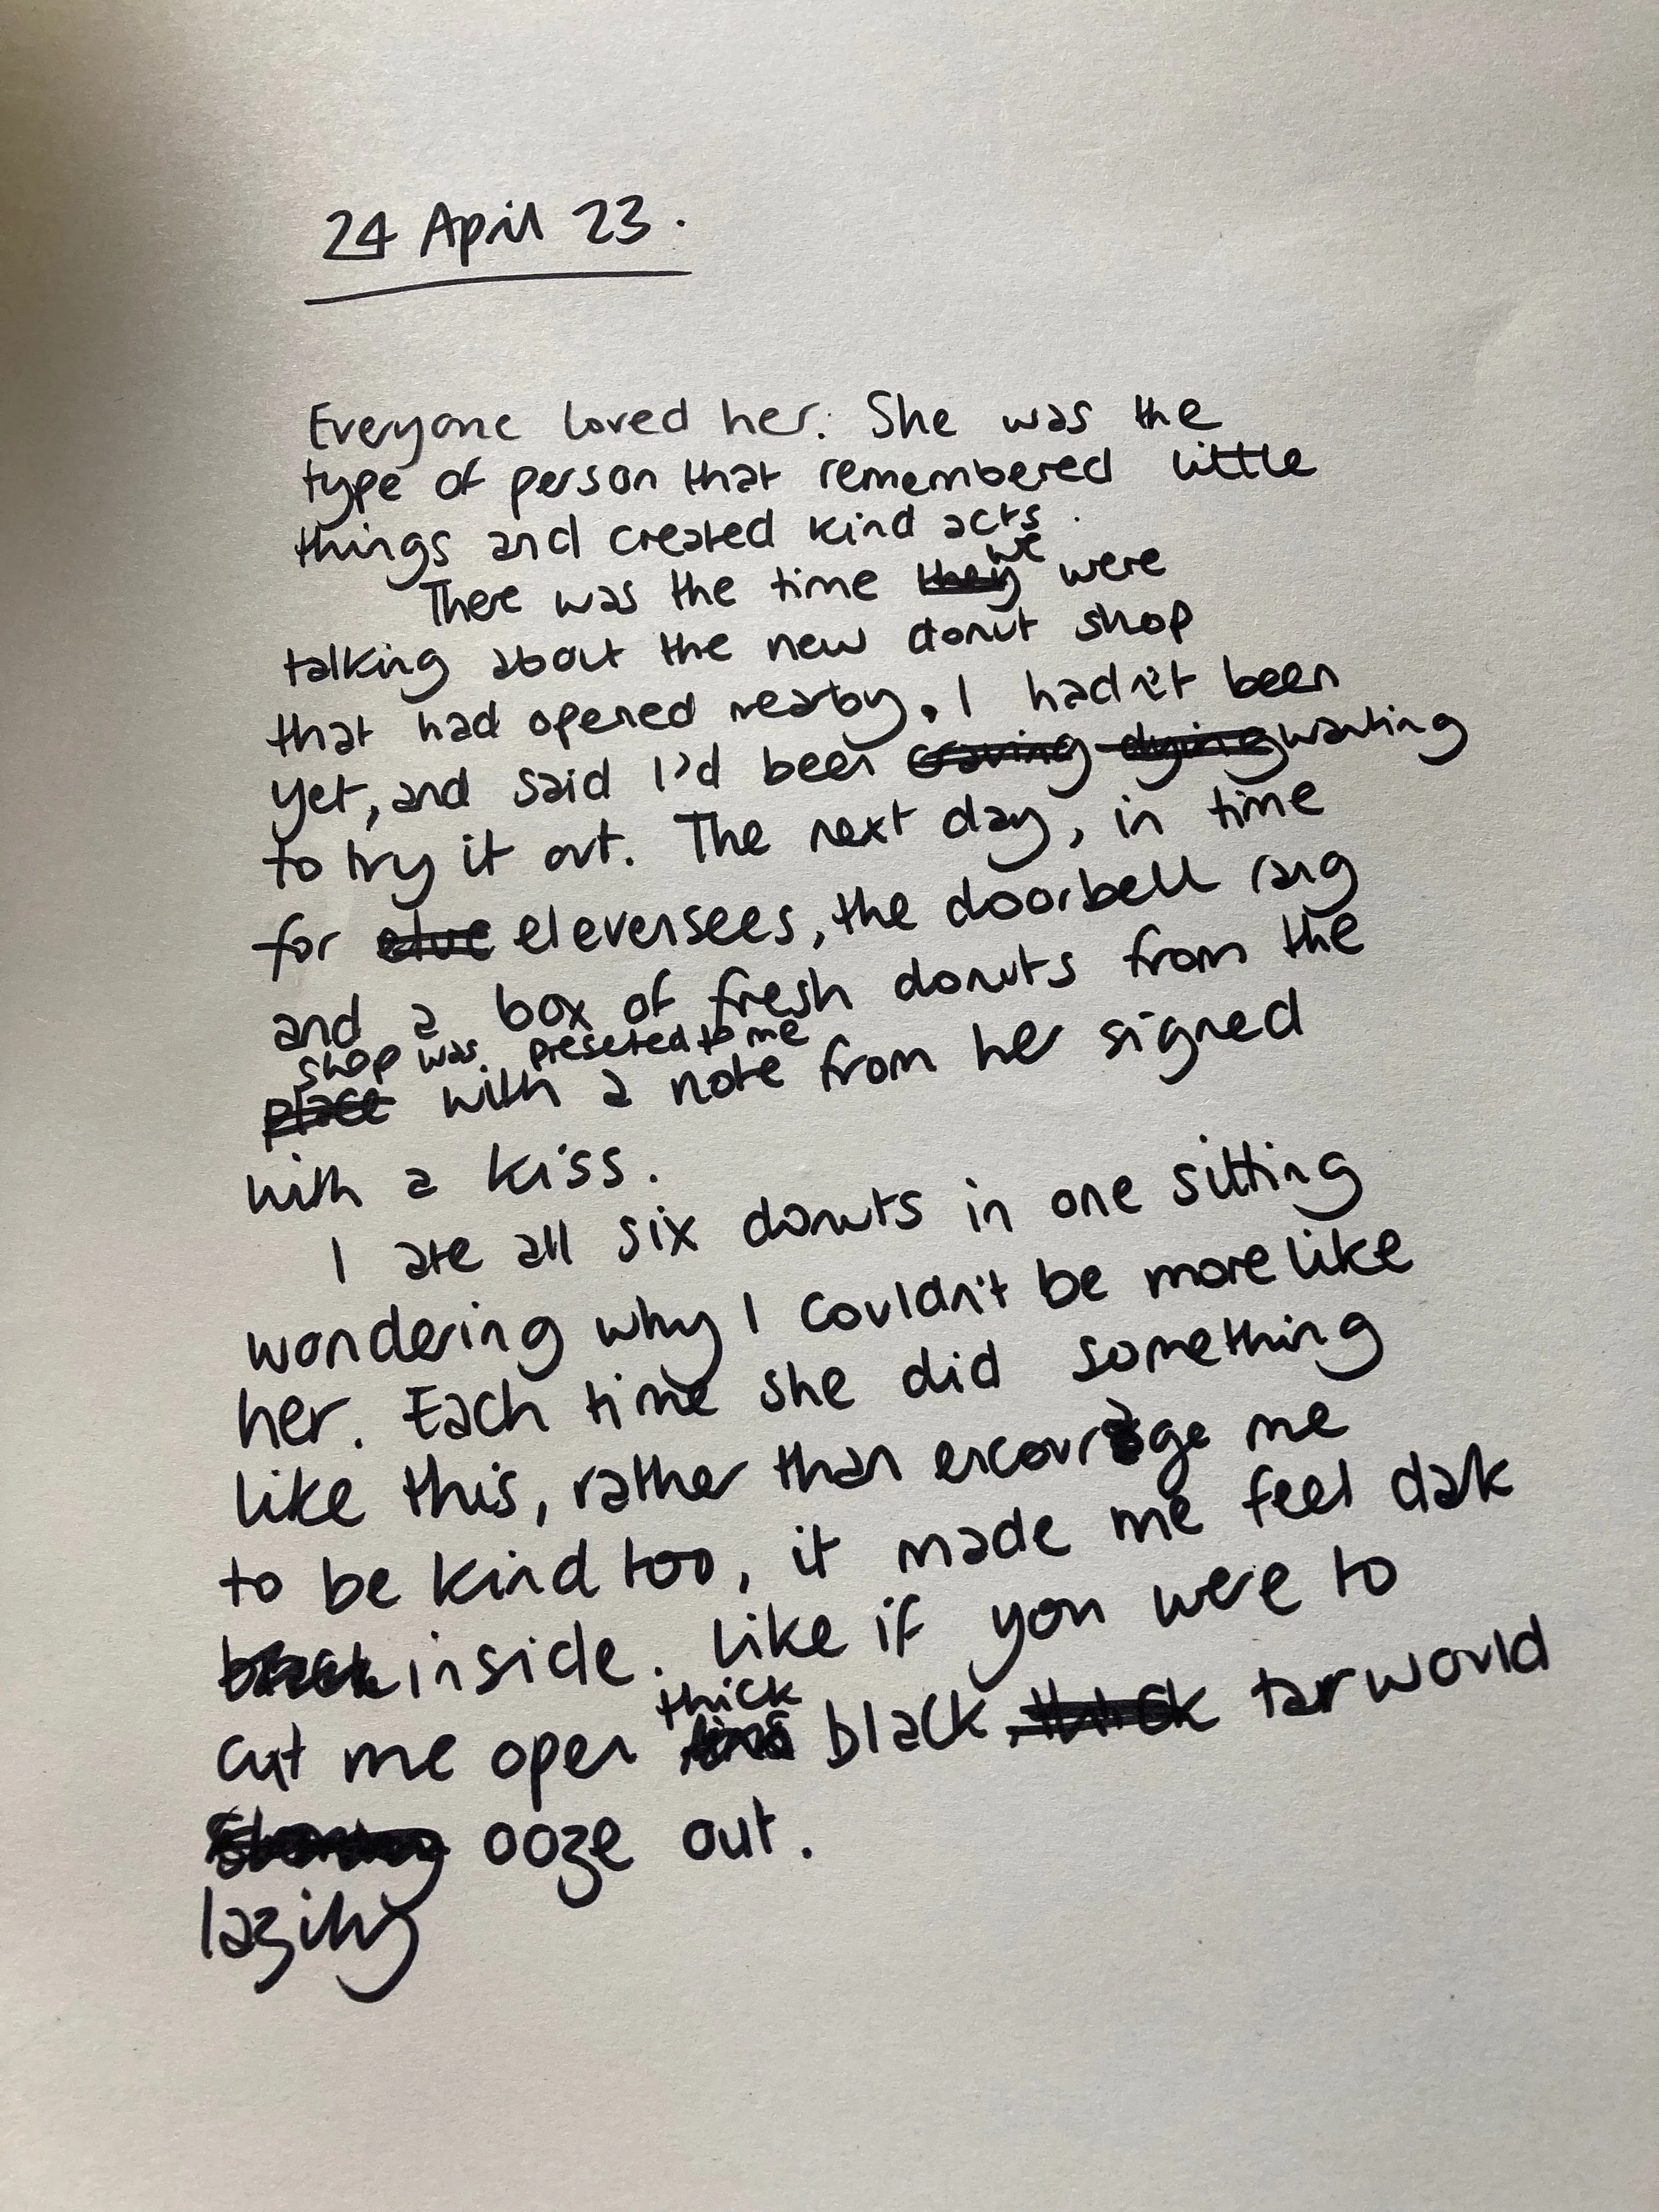 24 April 23.
Everyone loved her. She was the
type of person that remembered little
things and created kind acts.
we
There was the time they were
talking about the new donut shop
that had opened nearby. I hadn't been
yet, and said I'd been craving dying wanting
to try it out. The next day, in time
for elve elevensees, the doorbell rang
and a box of fresh donuts from the
shop was presented to me
place with a note from her signed
with a kiss.
I ate all six donuts in one sitting
wondering why I couldn't be more like
her. Each time she did something
like this, rather than encourage me
to be kind too, it made me feel dark
black inside. Like if you were to
thick
cut me open black, thick tar would
ooze out.
lazily